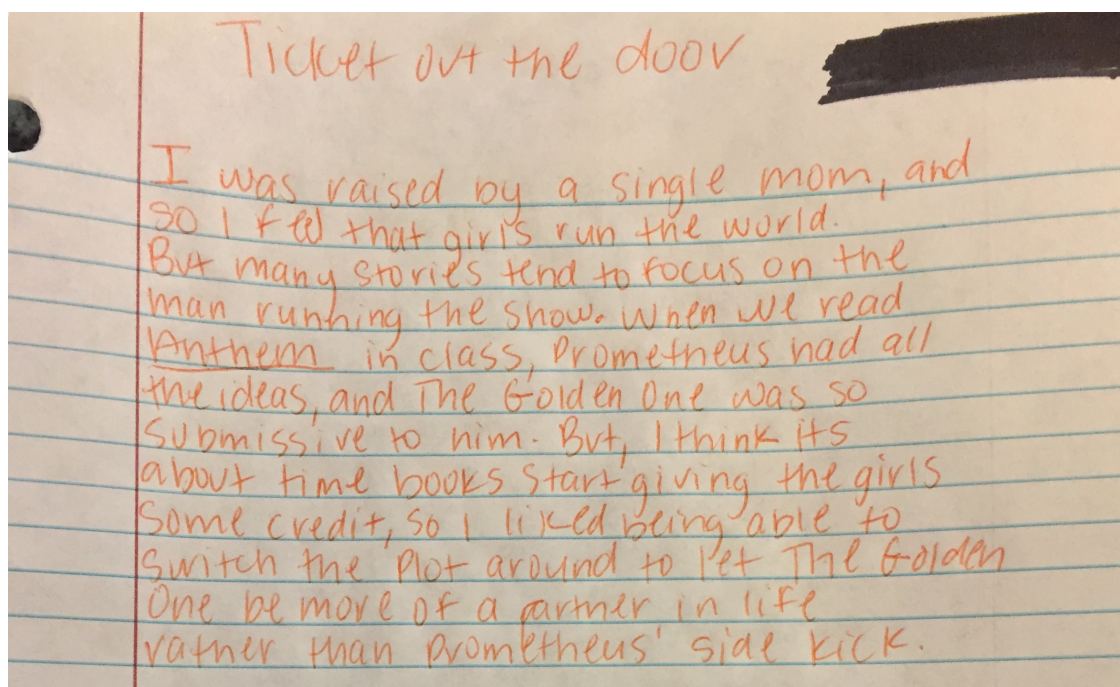 Ticket out the door
I was raised by a single mom, and
so I feel that girls run the world.
But many stories tend to focus on the
man running the show. When we read
Anthem in class, Prometheus had all
the ideas, and The Golden One was so
submissive to him. But, I think its
about time books start giving the girls
some credit, so I liked being able to
switch the plot around to let The Golden
One be more of a partner in life
rather than Prometheus' side kick.